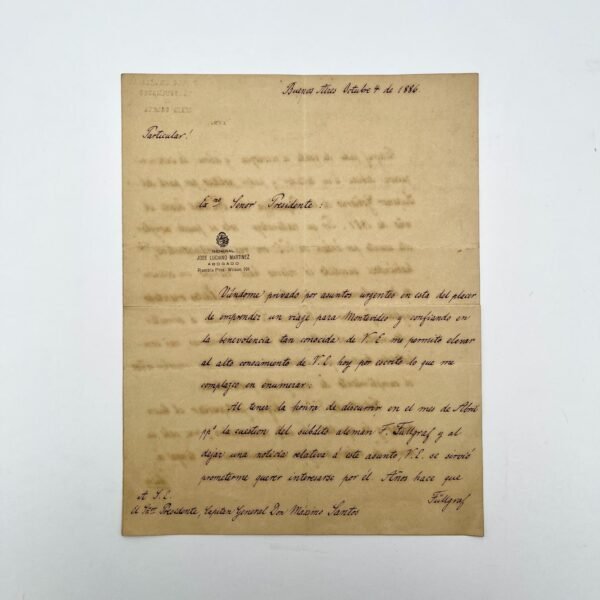 Buenos Aires Octubre 4 de 1886
Particular!
Ex.mo Señor Presidente:
GENERAL
JOSÉ LUCIANO MARTINEZ
ABOGADO
Rambla Pres. Wilson
Viéndome privado por asuntos urgentes en esta del placer
de emprender un viaje para Montevideo y confiando en
la benevolencia tan conocida de V. E. me permito elevar
al alto conocimiento de V. E. hoy por escrito lo que me
complazco en enumerar.
Al tener la honra de discurrir en el mes de Abril
ppº la cuestion del súbdito aleman F. Füllgraf y al
dejar una noticia relativa á este asunto, V. E. se sirvió
prometerme querer interesarse por él. Años hace que
Füllgraf
A S. E.
el Presidente, Capitan General Don Máximo Santos